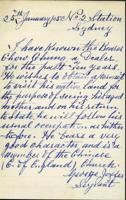 25th January 1915 No 2 Station
Sydney
I have known the Bearer
Chow Coling a Dealer
for the past ten years.
He wishes to obtain a permit
to visit his native land for
the purpose of seeing his aged
mother, and on his return
to State he will follow his
usual occupation as hitherto
before. He bears a very
good character and is a
member of the Chinese
(C. of England) Church.
George
Sergeant